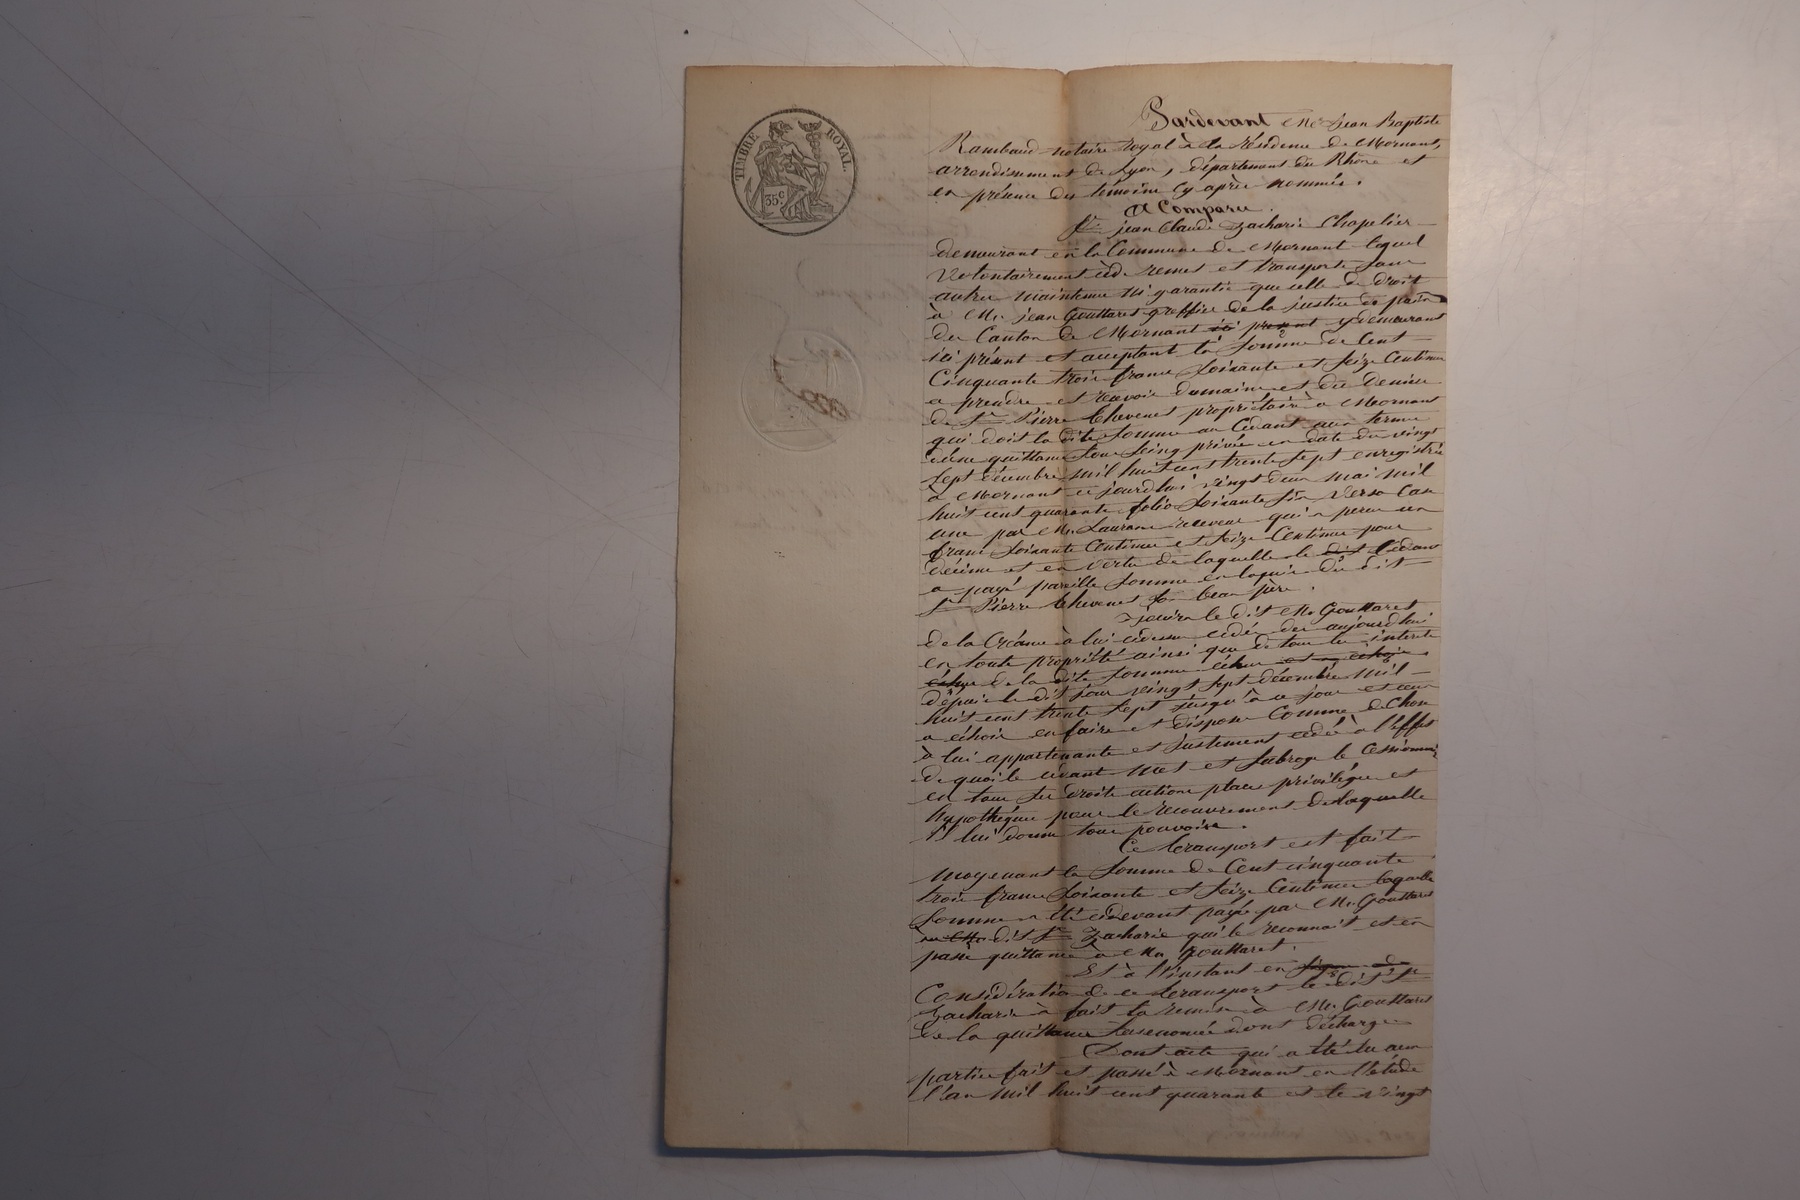 TIMBRE ROYAL
35 c.
Pardevant Me Jean Baptiste
Rambaud notaire royal à la résidence de Mornant,
arrondissement de Lyon, département du Rhône et
en présence des témoins cy après nommés.
A Comparu.
Sr. jean Claude Zacharie Chapelier
demeurant en la Commune de Mornant lequel
volontairement cède remet et transporte sans
autre maintenue ni garantie que celle de droit
à Mr. jean Gouttaret greffier de la justice de paix
du Canton de Mornant ici présent y demeurant
ici présent et acceptant la Somme de Cent
Cinquante trois francs Soixante et Seize Centimes
a prendre et recevoir du
de Sr. Pierre Thevenet propriétaire a Mornant
qui doit la dite Somme au Cédant aux termes
d'une quittance Sous Seing privée en date du vingt
Sept décembre mil huit cent trente Sept enregistrée
à Mornant ce jourd'hui vingt deux mai mil
huit cent quarante folio Soixante Six verso Case
une par Mr. Laurans receveur qui a perçu un
franc Soixante Centimes et Seize Centimes pour
décime et en vertu de laquelle le dit Cédant
a payé pareille Somme en l'aquit du dit
Sr. Pierre Thevenet Son beau père.
jouira le dit Mr. Gouttaret
de la Créance à lui cidessus cédée des aujourdhui
en toute propriété ainsi que de tous les intérêts
échus de la dite Somme échus et a échoir
dépuis le dit jour vingt Sept décembre mil
huit cent trente Sept jusqu'à ce jour et ceux
a échoir en faire et disposer Comme de Chose
à lui appartenante et justement cédée à l'effet
de quoi le cédant met et Subroge le Cessionnaire
en tous Ses droits actions places privilèges et
hypothéque pour le recouvrement de laquelle
il lui donne tous pouvoirs.
Ce transport est fait
moyenant la Somme de Cent cinquante
trois francs Soixante et Seize Centimes laquelle
Somme a été cidevant payée par Mr. Gouttaret
au dit Sr. Zacharie qui le reconnait et en
passe quittance à Mr. Gouttaret.
Et à l'instant en
Considération de ce transport le dit Sr.
Zacharie à fait la remise à Mr. Gouttaret
de la quittance Susénoncée dont décharge
Dont acte qui a été lu aux
parties fait et passé à Mornant en l'étude
l'an mil huit cent quarante et le vingt